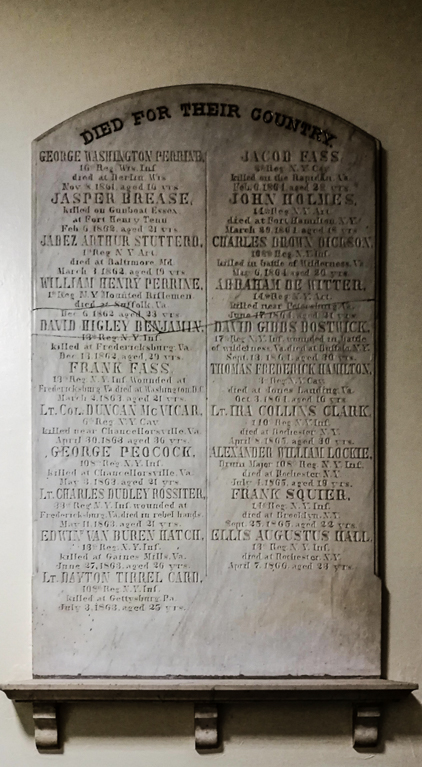 DIED FOR THEIR COUNTRY.
GEORGE WASHINGTON PERRINE,
16th Reg. Wis. Inf.
died at Berlin Wis
Nov. 8 1861, aged 16 yrs
JASPER BREASE,
killed on Gunboat Essex
at Fort Henry Tenn
Feb. 6 1862, aged 21 yrs
JABEZ ARTHUR STUTTERD,
1st Reg. N.Y. Art
died at Baltimore Md.
March 4 1862, aged 19 yrs
WILLIAM HENRY PERRINE,
1st Reg. N.Y. Mounted Riflemen
died at Suffolk Va
Dec. 6 1862, aged 23 yrs
DAVID HIGLEY BENJAMIN,
13th Reg. N.Y. Inf.
killed at Fredericksburg Va
Dec. 13 1862, aged 29 yrs.
FRANK FASS,
13th Reg. N.Y. Inf. Wounded at
Fredericksburg Va. died at Washington, D.C.
March 2, 1863, aged 21 yrs
Lt. Col. DUNCAN McVICAR,
6th Reg. N.Y. Cav
killed near Chancellorsville Va.
April 30, 1863, aged 36 yrs.
GEORGE PEOCOCK,
108th Reg. N.Y. Inf.
killed at Chancellorsville Va.
May 3, 1863, aged 21 yrs
Lt. CHARLES DUDLEY ROSSITER,
Reg. N.Y. Inf. wounded at
Fredericksburg, Va. died in rebel hands.
May 11, 1863, aged 21 yrs.
EDWIN VAN BUREN HATCH,
13th Reg. N.Y. Inf.
killed at Gaines Mills, Va.
June 27, 1863, aged 26 yrs.
Lt. DAYTON TIRREL CARD,
108th Reg. N.Y. Inf.
killed at Gettysburg, Pa.
July 3, 1863, aged 25 yrs.
JACOB FASS,
8th Reg. N.Y. Cav
killed on the Rapidan Va.
Feb. 6, 1864, aged yrs
JOHN HOLMES,
14th Reg. N.Y. Art.
died at Fort Hamilton N.Y.
March 29, 1864, aged 18 yrs
CHARLES BROWN DICKSON,
108th Reg. N.Y. Inf.
killed in battle of Wilderness Va.
May 6, 1864, aged 20 yrs.
ABRAHAM DE WITTER,
14th Reg. N.Y. Art.
killed near Petersburg Va
June 17, 1864, aged 21 yrs
DAVID GIBBS BOSTWICK,
17th Reg. N.Y. Inf. wounded in battle
of wilderness Va. died at Buffalo, N.Y.
Sept. 13, 1864, aged 20 yrs.
THOMAS FREDERICK HAMILTON,
3 Reg. N.Y. Cav
died at Jones Landing, Va.
Oct. 3 1864, aged 16 yrs
Lt. IRA COLLINS CLARK,
140 Reg. N.Y. Inf.
died at Rochester N.Y.
April 8, 1865, aged 30 yrs.
ALEXANDER WILLIAM LOCKIE,
Drum Major 108th Reg. N.Y. Inf.
died at Rochester N.Y.
July 4, 1865, aged 19 yrs.
FRANK SQUIER,
14th Reg. N.Y. Inf.
died at Brooklyn N.Y.
Sept. 25, 1865, aged 22 yrs.
ELLIS AUGUSTUS HALL,
Reg. N.Y. Inf.
died at Rochester N.Y.
April 7, 1866, aged 23 yrs.